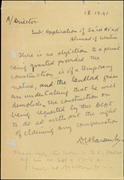 A/Director
18.12.41
Sub: Application of Said Ahmed
There is no objection to a permit
being granted provided the
construction is of a temporary
nature, and the landlord gives
an undertaking that he will
demolish the construction on
being requested by this Dept
to do so without the right
of claiming any compensation